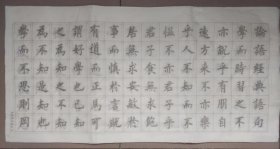 論語經典語句
學而時習之不
亦說乎有朋自
遠方來不亦樂
乎人不知而不
慍不亦君子乎
君子食無求飽
居無求安敏於
事而慎於言就
有道而正焉可
謂好學也已知
之為知之不知
為不知是知也
學而不思則罔